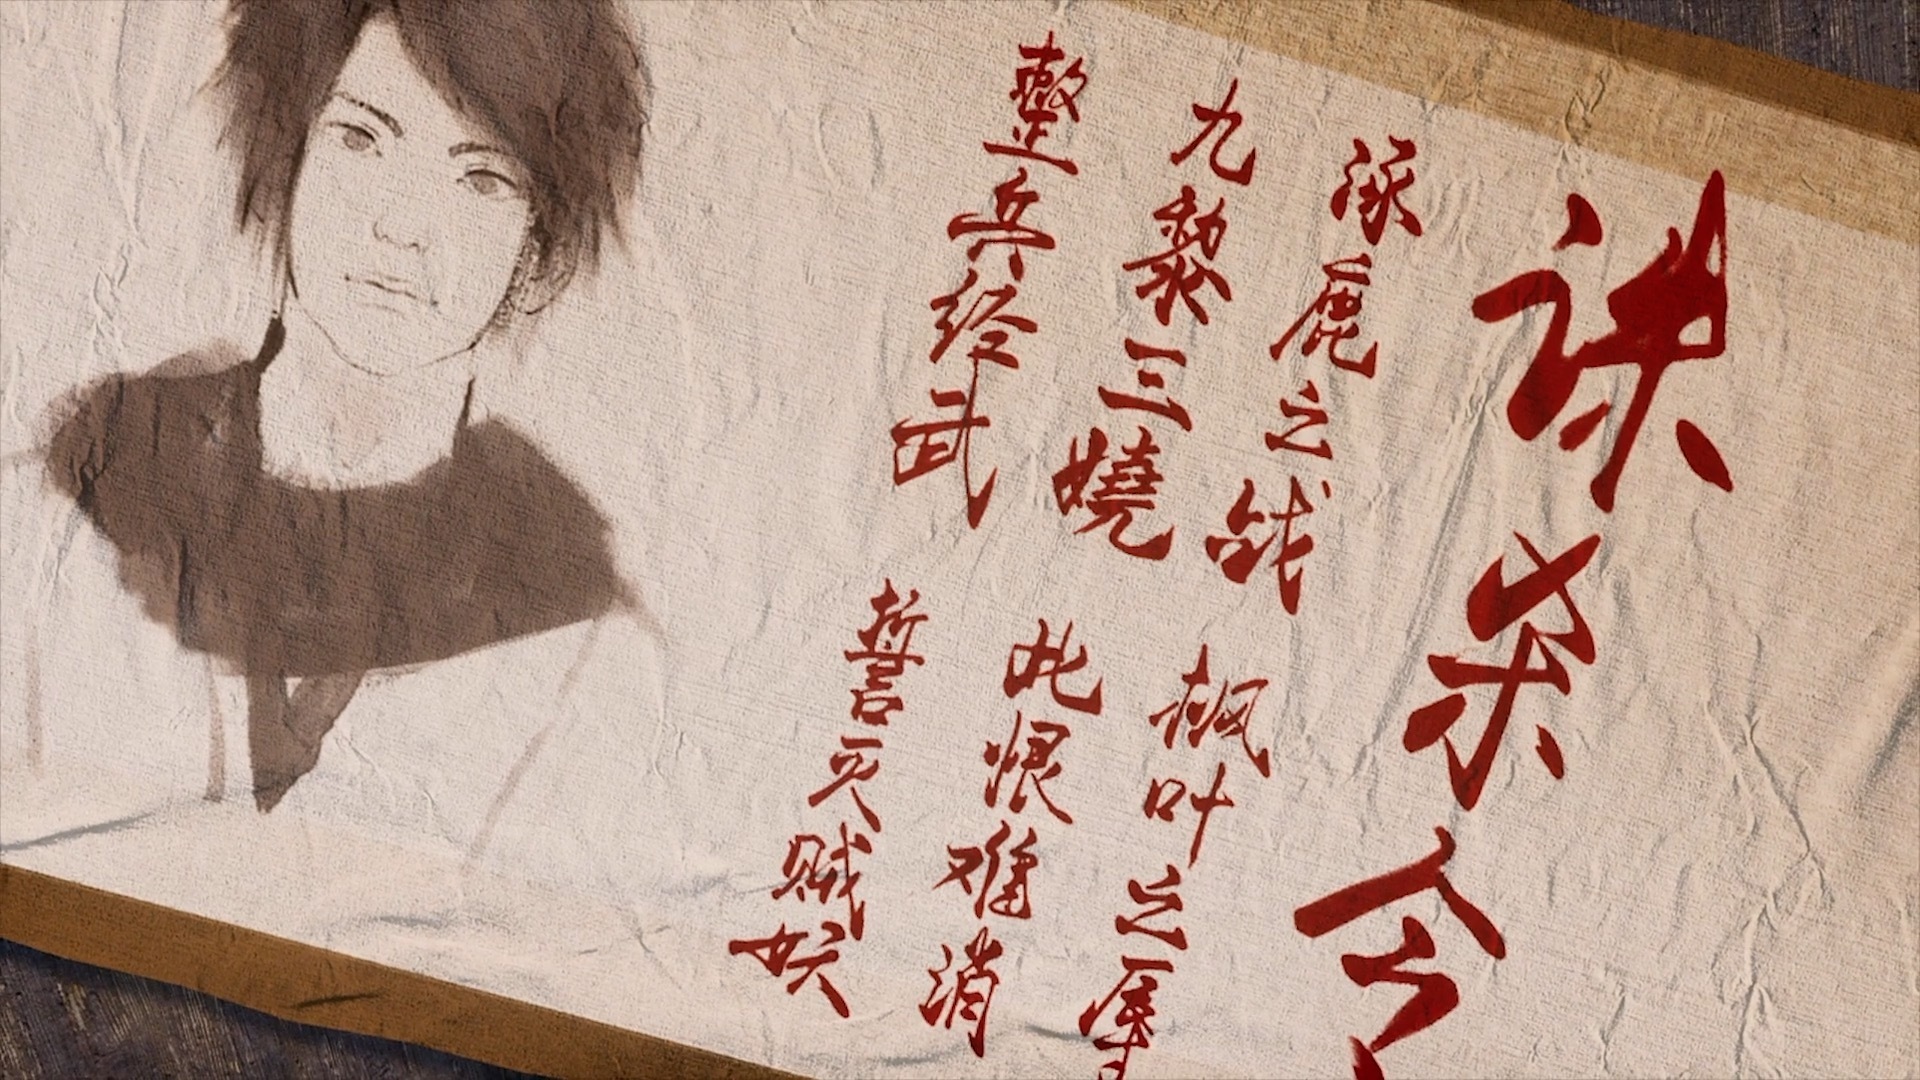 诛杀令
涿鹿之战
枫叶之辱
九黎三嬈
此恨难消
整兵经武
誓灭贼妖